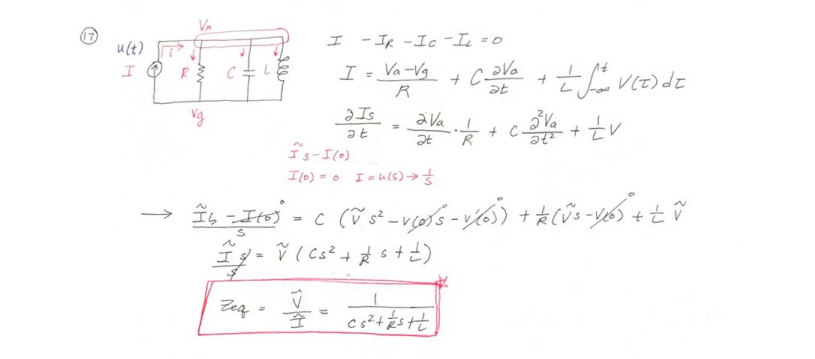 17
Va
u(t)
I
i
R
C
L
Vg
I - I_R - I_C - I_L = 0
I = (Va - Vg)/R + C ∂Va/∂t + 1/L ∫_{-∞}^{t} V(τ) dτ
∂Is/∂t = ∂Va/∂t · 1/R + C ∂²Va/∂t² + 1/L V
Ĩs - I(0)
I(0) = 0 I = u(s) → 1/s
→ (Ĩs - I(0)⁰)/s = C (Ṽs² - V(0)s⁰ - V'(0)⁰) + 1/R (Ṽs - V(0)⁰ + 1/L Ṽ
Ĩs/s = Ṽ (Cs² + 1/R s + 1/L)
Zeq = Ṽ/Ĩ = 1/(Cs² + 1/R s + 1/L)